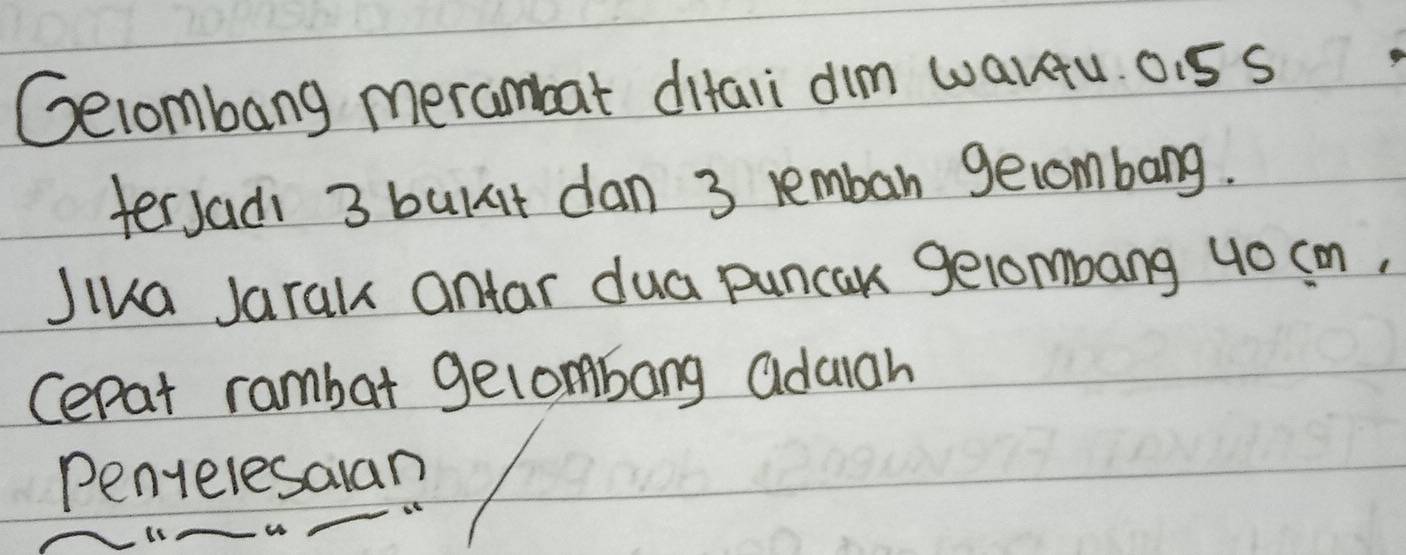 Gelombang merambat ditali dlm waktu 0,5 s
terjadi 3 bukit dan 3 lembah gelombang.
Jika Jarak antar dua puncak gelombang 40 cm,
Cepat rambat gelombang adalah
Penyelesaian